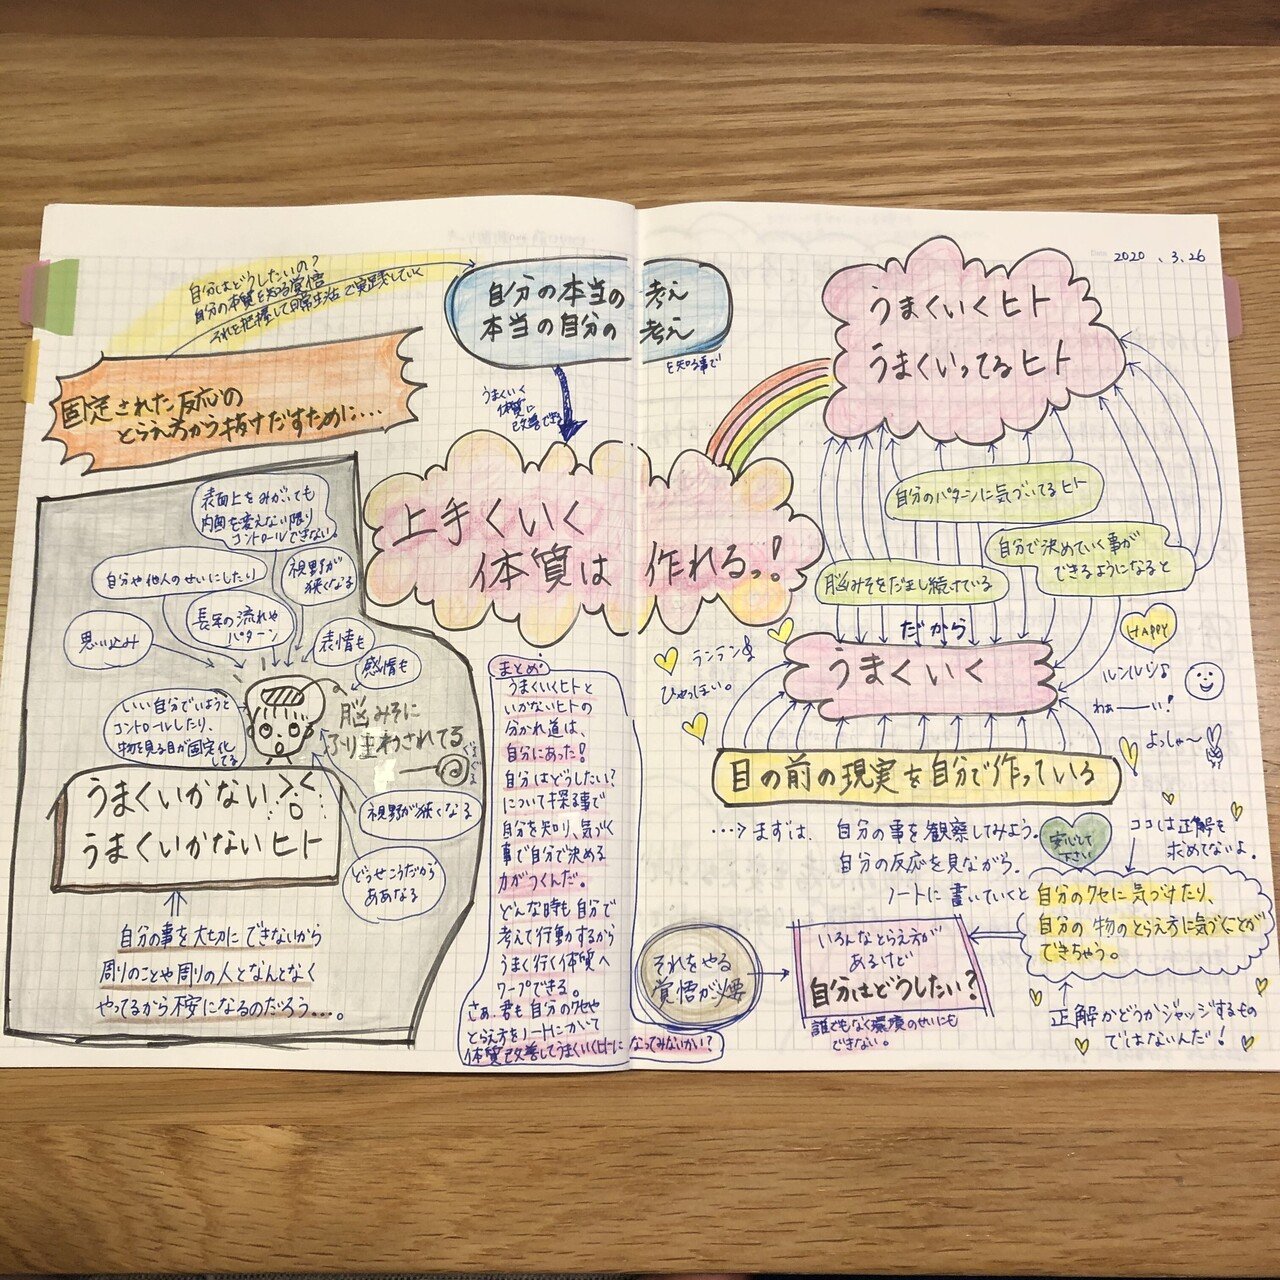 2020.3.26
自分はどうしたいの?
自分の本質を知る覚悟
それを把握して日常生活で実践していく
固定された反応の
とらえ方から抜けだすために…
自分の本当の考え
本当の自分の考え
を知る事で
うまくいく
体質に
改善できる
上手くいく
体質は作れるっ!
うまくいくヒト
うまくいってるヒト
自分のパターンに気づいてるヒト
自分で決めていく事が
できるようになると
脳みそをだまし続けている
だから
うまくいく
HAPPY
ランラン♪
ひゃっほい。
ルンルン♪
わぁーーい!
よっしゃ〜
目の前の現実を自分で作っている
表面上をみがいても
内面を変えない限り
コントロールできない。
自分や他人のせいにしたり
視野が
狭くなる
長年の流れや
パターン
思い込み
表情も
感情も
いい自分でいようと
コントロールしたり、
物を見る目が固定化
してる
脳みそに
ふり回わされてる
ぐるぐる
視野が狭くなる
どうせこうだから
ああなる
うまくいかない
うまくいかないヒト
自分の事を大切にできないから
周りのことや周りの人となんとなく
やってるから不安になるのだろう…。
まとめ
うまくいくヒトと
いかないヒトの
分かれ道は、
自分にあった!
自分はどうしたい?
について探る事で
自分を知り、気づく
事で自分で決める
力がつくんだ。
どんな時も自分で
考えて行動するから
うまく行く体質へ
ワープできる。
さぁ、君も自分のクセや
とらえ方をノートにかいて
体質改善してうまくいくヒトになってみないかい?
…>まずは、自分の事を観察してみよう。
自分の反応を見ながら、
ノートに書いていくと
自分のクセに気づけたり、
自分の物のとらえ方に気づくことが
できちゃう。
安心して
下さい
ココは正解を
求めてないよ。
正解かどうかジャッジするもの
ではないんだ!
それをやる
覚悟が必要
いろんなとらえ方が
あるけど
自分はどうしたい?
誰でもなく環境のせいにも
できない。